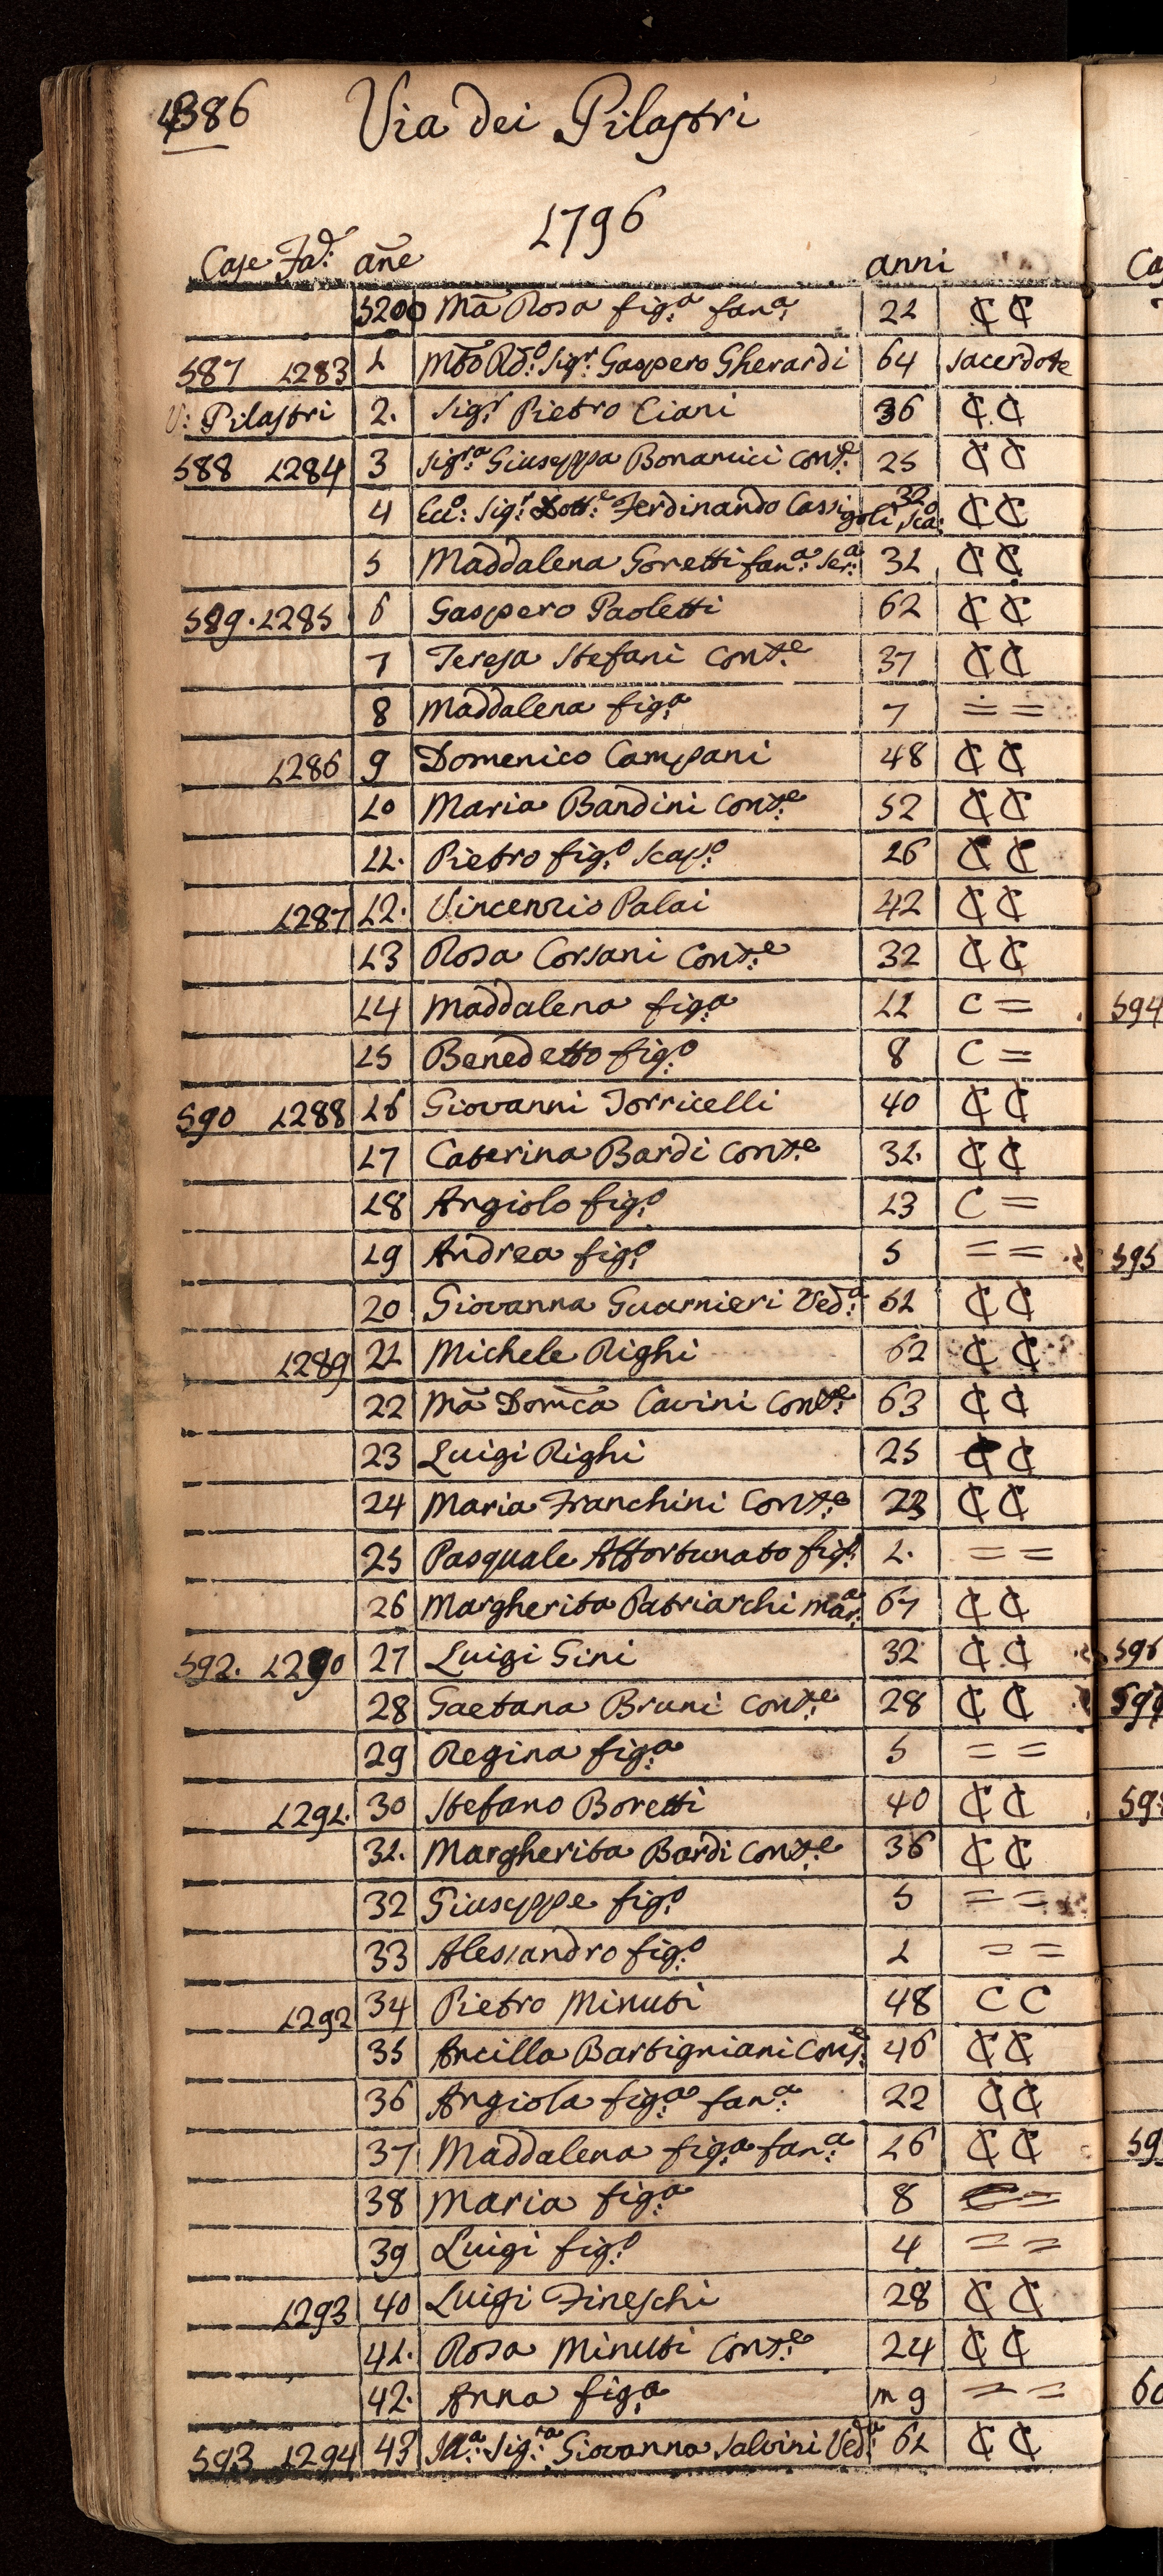 386 Via dei Pilastri
1796
Case Fad: añe anni
5200 Mã Rosa fig:a fan:a 21 ₵ ₵
587 1283 1 Mto Rdo: Sigr: Gaspero Gherardi 64 sacerdote
V: Pilastri 2. Sigr: Pietro Ciani 36 ₵ ₵
588 1284 3 Sigra: Giuseppa Bonamici Conte: 25 ₵ ₵
4 Ecco: Sigr: Dotte: Ferdinando Cassigoli sco: 32 ₵ ₵
5 Maddalena Goretti fan:a ser:a 31 ₵ ₵
589. 1285 6 Gaspero Paoletti 62 ₵ ₵
7 Teresa Stefani Cont:e 37 ₵ ₵
8 Maddalena fig:a 7 = =
1286 9 Domenico Campani 48 ₵ ₵
10 Maria Bandini Cont:e 52 ₵ ₵
11. Pietro fig:o scap:o 26 ₵ ₵
1287 12. Vincenzio Palai 42 ₵ ₵
13 Rosa Corsani Cont:e 32 ₵ ₵
14 Maddalena fig:a 11 C =
15 Benedetto fig:o 8 C =
590 1288 16 Giovanni Torricelli 40 ₵ ₵
17 Caterina Bardi Cont:e 31. ₵ ₵
18 Angiolo fig:o 13 C =
19 Andrea fig:o 5 = =
20 Giovanna Guarnieri Ved:a 61 ₵ ₵
1289 21 Michele Righi 62 ₵ ₵
22 Mã Domca Cavini Cont:e 63 ₵ ₵
23 Luigi Righi 25 ₵ ₵
24 Maria Franchini Cont:e 23 ₵ ₵
25 Pasquale Affortunato fig:o 1. = =
26 Margherita Patriarchi Mar:a 67 ₵ ₵
592. 1290 27 Luigi Gini 32 ₵ ₵
28 Gaetana Bruni Cont:e 28 ₵ ₵
29 Regina fig:a 5 = =
1291. 30 Stefano Boretti 40 ₵ ₵
31. Margherita Bardi Cont:e 36 ₵ ₵
32 Giuseppe fig:o 5 = =
33 Alessandro fig:o 1 = =
1292 34 Pietro Minuti 48 C C
35 Ancilla Bartigniani Cont:e 46 ₵ ₵
36 Angiola fig:a fan:a 22 ₵ ₵
37 Maddalena fig:a fan:a 16 ₵ ₵
38 Maria fig:a 8 = =
39 Luigi fig:o 4 = =
1293 40 Luigi Fineschi 28 ₵ ₵
41. Rosa Minuti Cont:e 24 ₵ ₵
42. Anna fig:a m 9 = =
593 1294 43 Ill:a Sig:ra Giovanna Salvini Ved:a 61 ₵ ₵
594
595
596